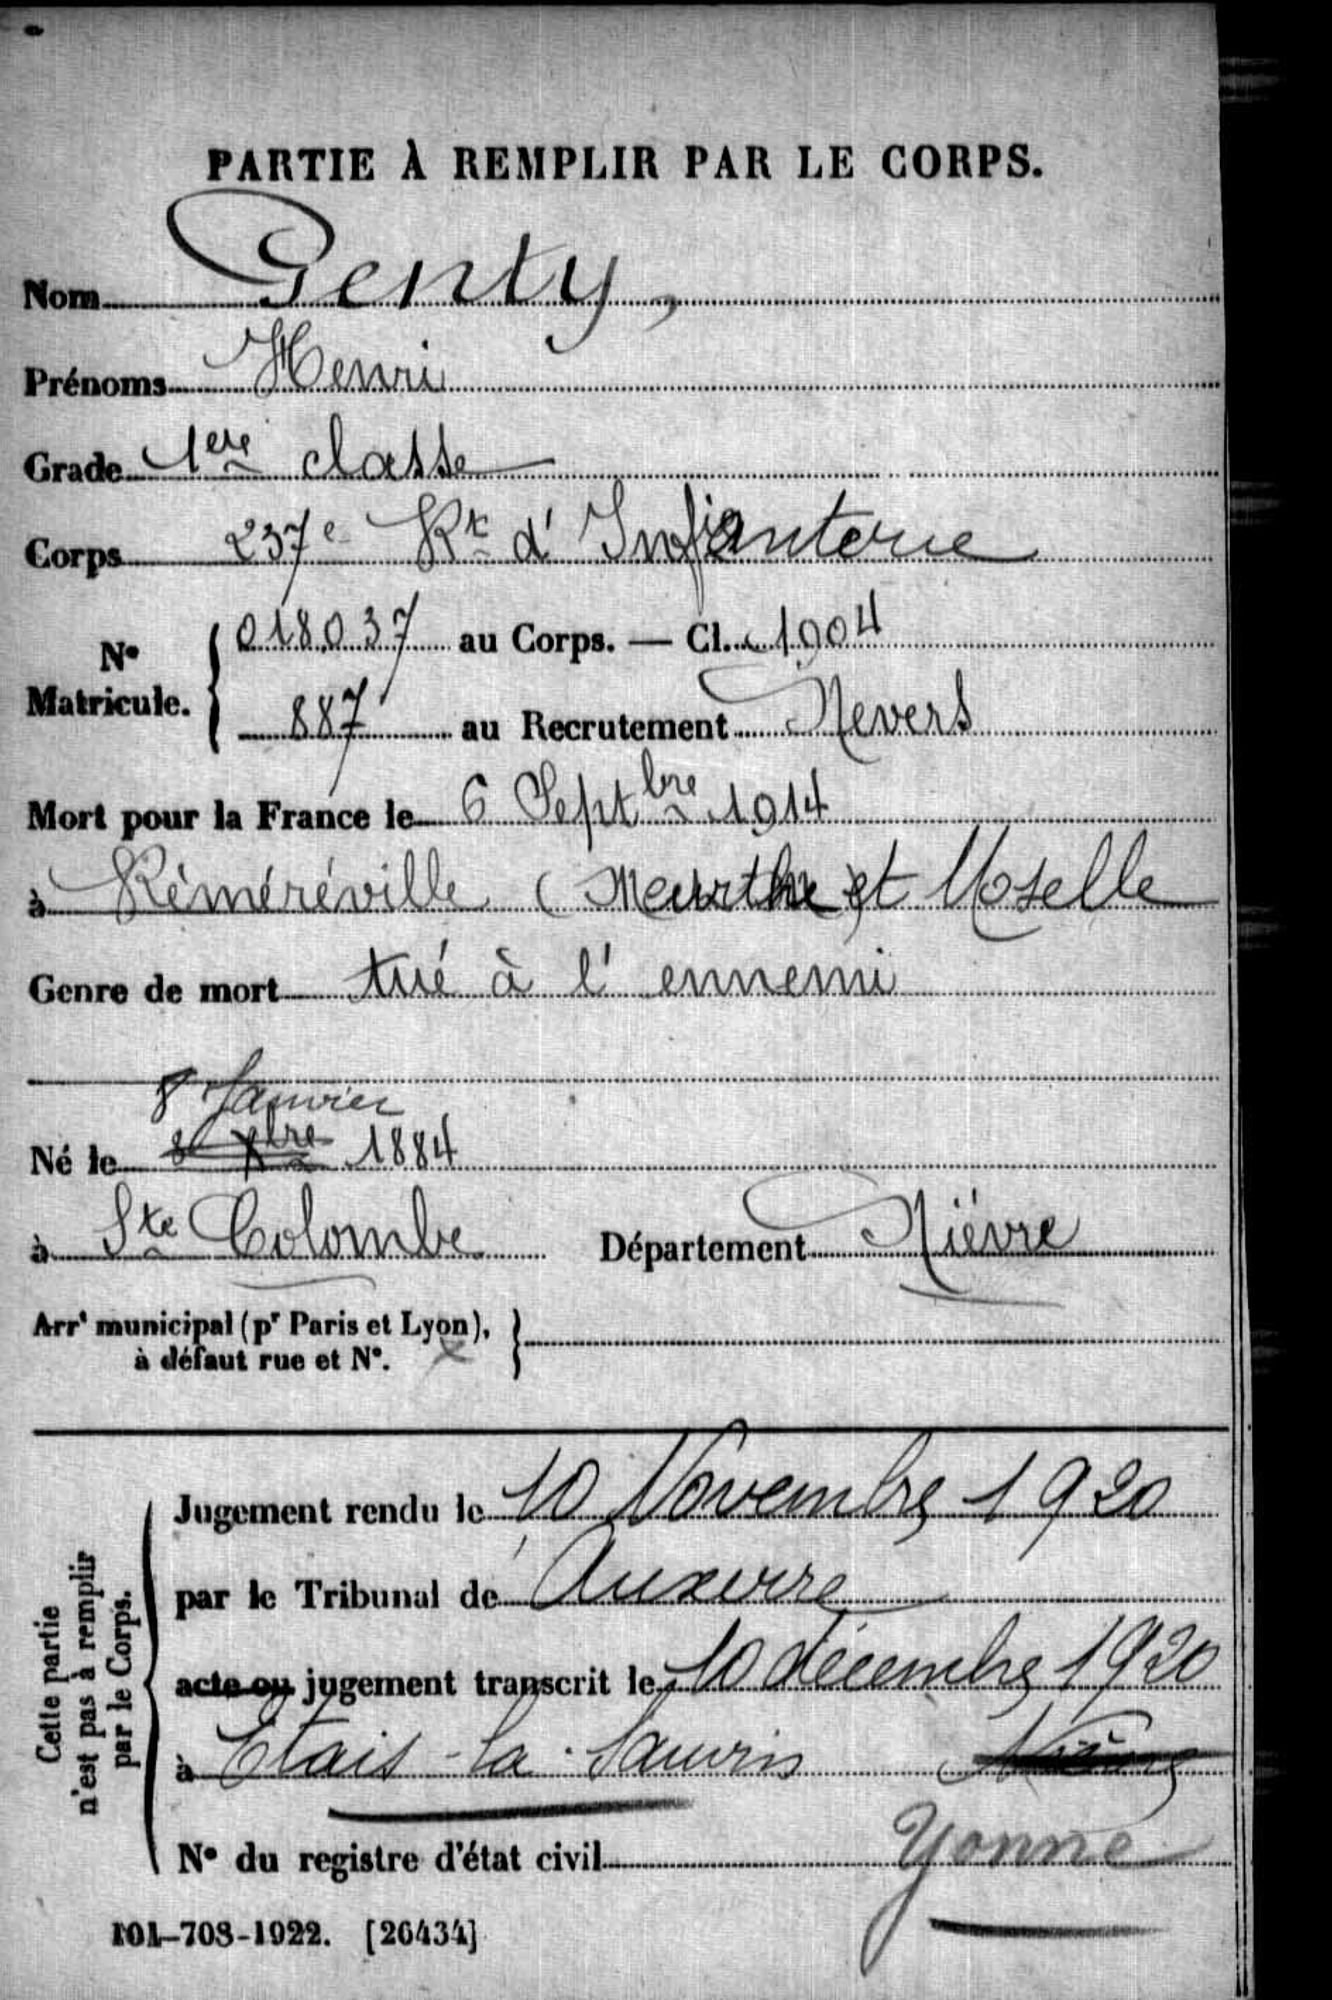 PARTIE À REMPLIR PAR LE CORPS.
Nom Genty,
Prénoms Henri
Grade 1ere classe
Corps 237e Rt d'Infanterie
N° Matricule. { 018037 au Corps. — Cl. 1904
887 au Recrutement Nevers
Mort pour la France le 6 Septbre 1914
à Réméréville (Meurthe et Moselle
Genre de mort tué à l'ennemi
8 Janvier
Né le 8 Xbre 1884
à Ste Colombe Département Nièvre
Arrt municipal (pr Paris et Lyon), }
à défaut rue et N°.
Cette partie
n'est pas à remplir
par le Corps.
Jugement rendu le 10 Novembre 1920
par le Tribunal de Auxerre
acte ou jugement transcrit le 10 décembre 1920
à Etais-la-Sauvin Nièvre
Yonne
N° du registre d'état civil
101-708-1922. [26434]